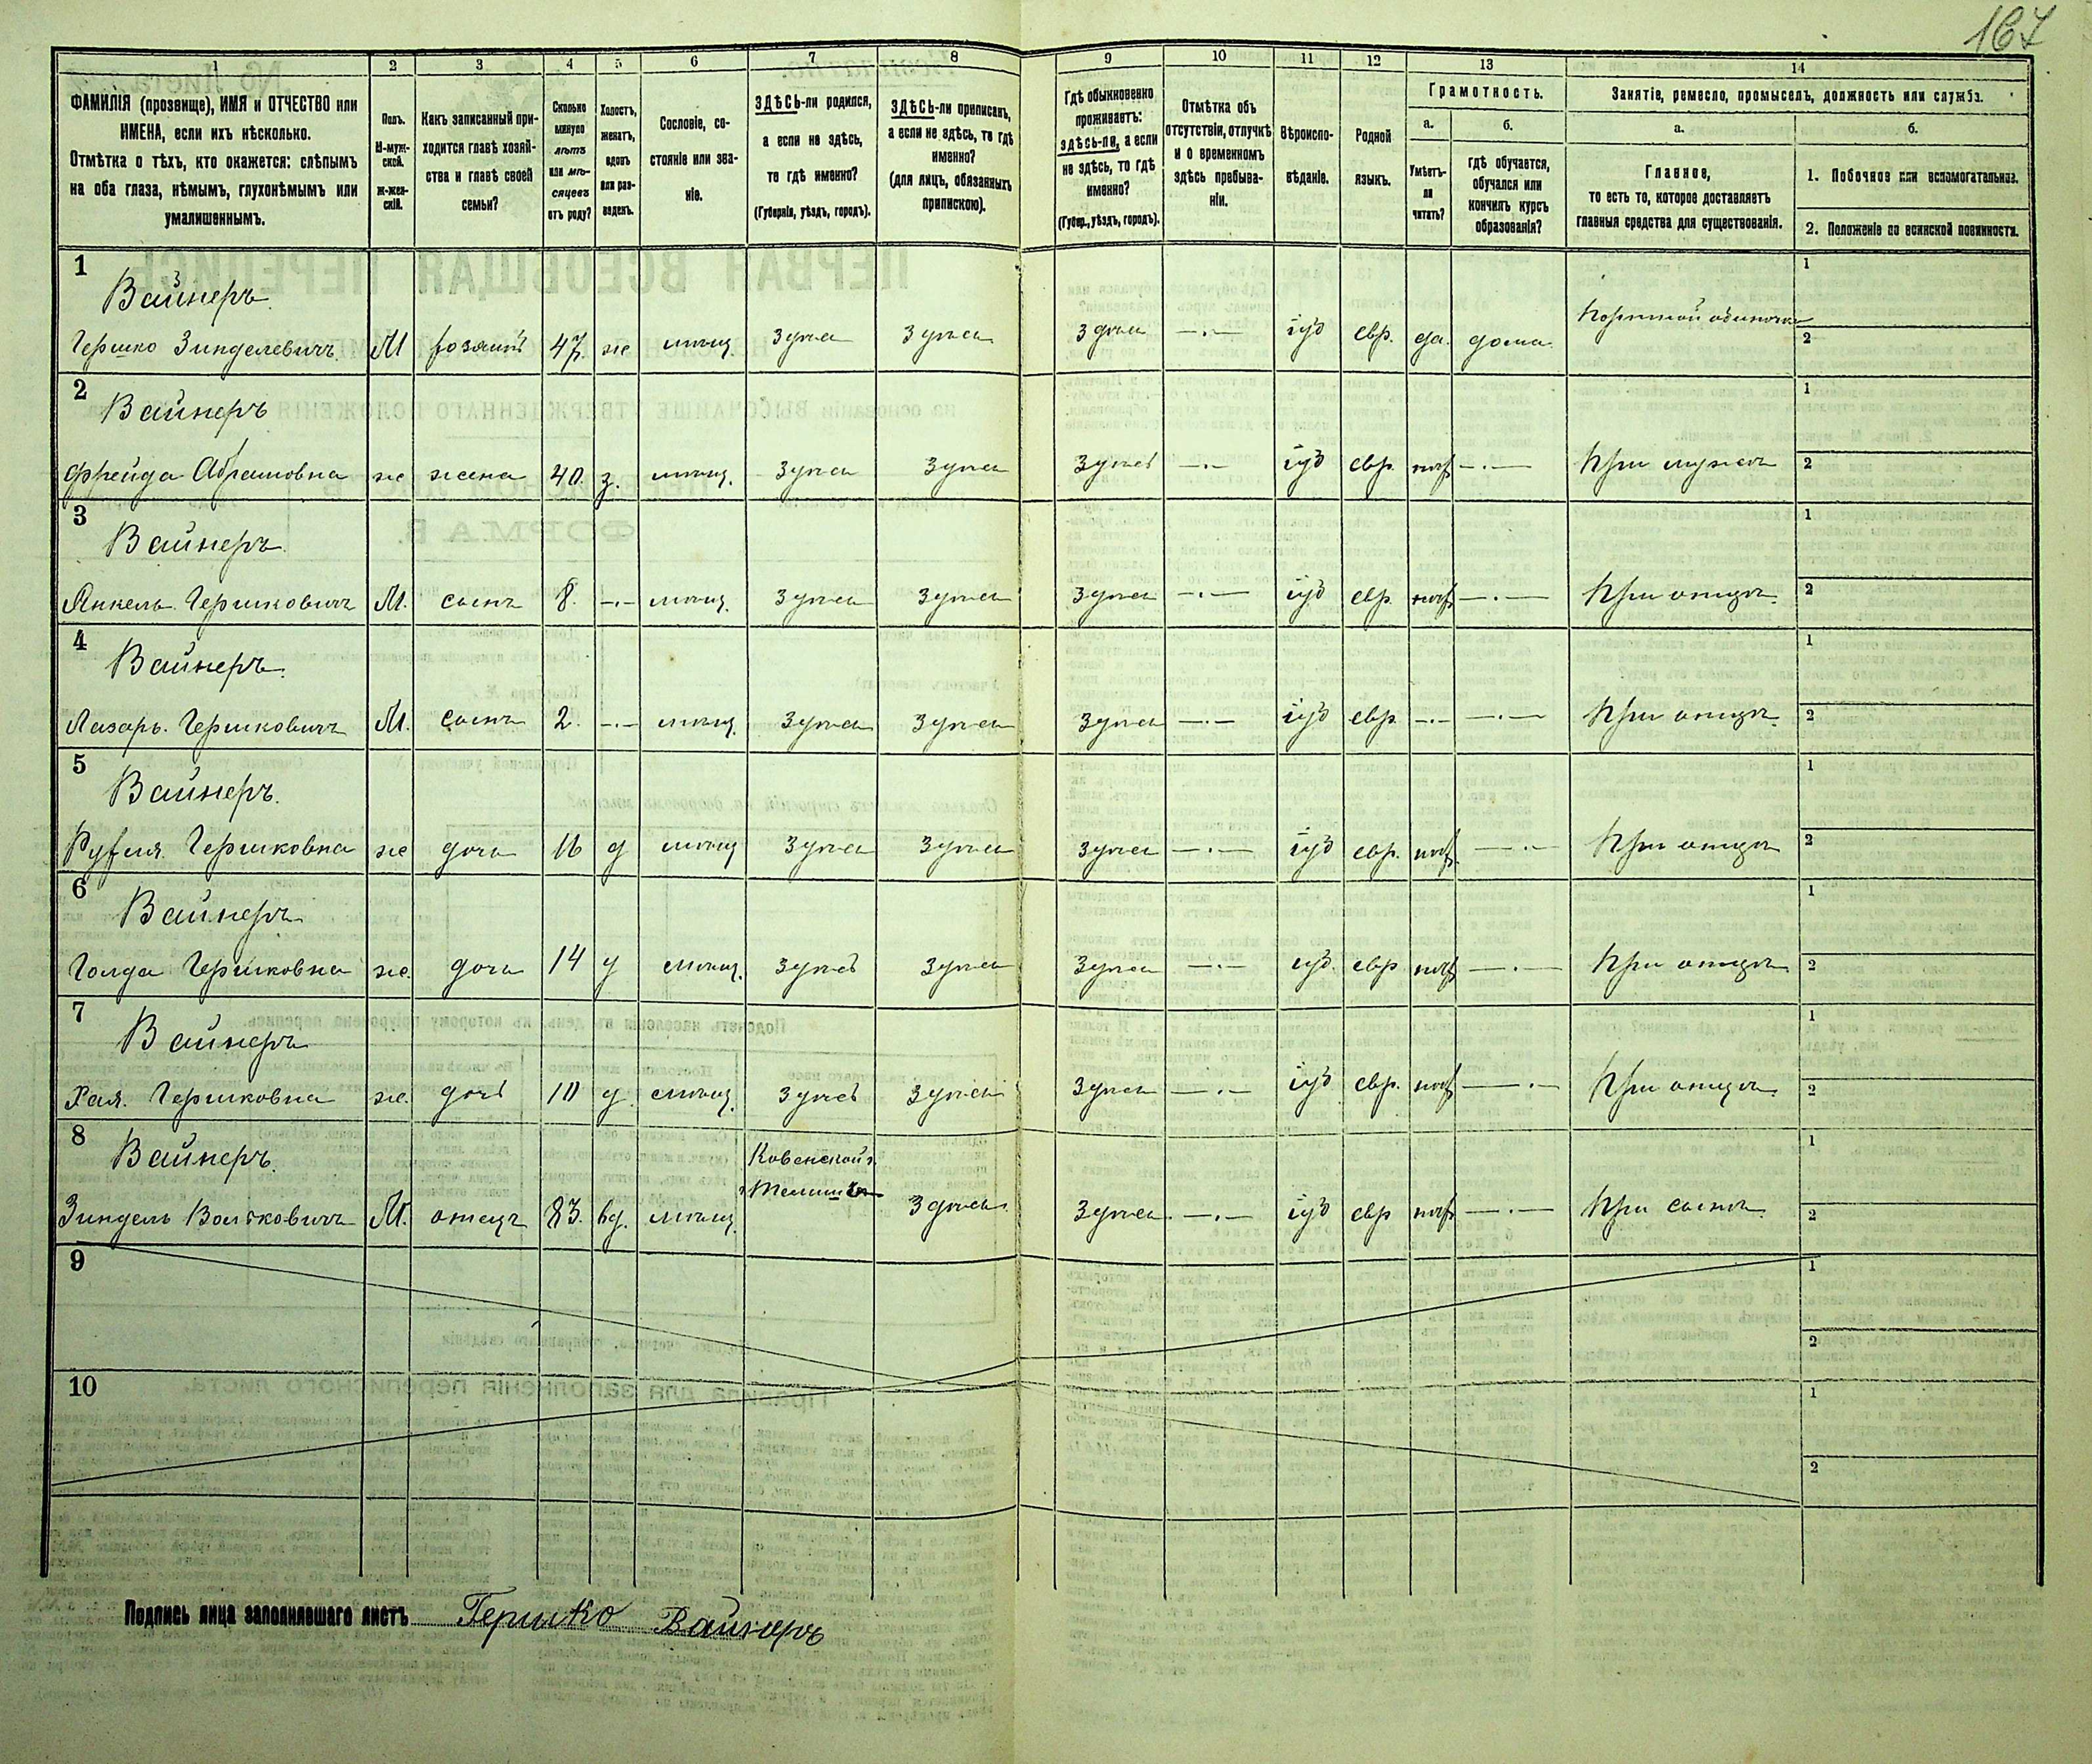 167
1 2 3 4 5 6 7 8 9 10 11 12 13 14
ФАМИЛІЯ (прозвище), ИМЯ и ОТЧЕСТВО или
ИМЕНА, если ихъ нѣсколько.
Отмѣтка о тѣхъ, кто окажется: слѣпымъ
на оба глаза, нѣмымъ, глухонѣмымъ или
умалишеннымъ.
Полъ.
М-муж-
ской.
Ж-жен-
скій.
Какъ записанный при-
ходится главѣ хозяй-
ства и главѣ своей
семьи?
Сколько
минуло
лѣтъ
или мѣ-
сяцевъ
отъ роду?
Холостъ,
женатъ,
вдовъ
или раз-
веденъ.
Сословіе, со-
стояніе или зва-
ніе.
ЗДѢСЬ-ли родился,
а если не здѣсь,
то гдѣ именно?
(Губернія, уѣздъ, городъ).
ЗДѢСЬ-ли приписанъ,
а если не здѣсь, то гдѣ
именно?
(для лицъ, обязанныхъ
припискою).
Гдѣ обыкновенно
проживаетъ:
здѣсь-ли, а если
не здѣсь, то гдѣ
именно?
(Губер., уѣздъ, городъ).
Отмѣтка объ
отсутствіи, отлучкѣ
и о временномъ
здѣсь пребыва-
ніи.
Вѣроиспо-
вѣданіе.
Родной
языкъ.
Грамотность.
а.
Умѣетъ-
ли
читать?
б.
гдѣ обучается,
обучался или
кончилъ курсъ
образованія?
Занятіе, ремесло, промыселъ, должность или служба.
а.
Главное,
то есть то, которое доставляетъ
главныя средства для существованія.
б.
1. Побочное или вспомогательное.
2. Положеніе по воинской повинности.
1 Вайнеръ 1
Гершко Зинделевичъ М хозяинъ 47 ж мѣщ. Здѣсь Здѣсь Здѣсь —.— іуд евр. да. дома. 2
2 Вайнеръ 1
Фрейда Абрамовна ж жена 40. з. мѣщ. Здѣсь Здѣсь Здѣсь —.— іуд евр. нѣт —.— При мужѣ 2
3 Вайнеръ 1
Янкель Гершковичъ М. сынъ 8. —.— мѣщ. Здѣсь Здѣсь Здѣсь —.— іуд евр. нѣт —.— При отцѣ. 2
4 Вайнеръ. 1
Лазарь. Гершковичъ М. сынъ 2. —.— мѣщ. Здѣсь Здѣсь Здѣсь —.— іуд евр. —.— —.— При отцѣ. 2
5 Вайнеръ. 1
Рухля Гершковна ж дочь 16 д мѣщ Здѣсь Здѣсь Здѣсь —.— іуд евр. нѣт. —.— При отцѣ 2
6 Вайнеръ 1
Голда Гершковна ж. дочь 14 д мѣщ. Здѣсь Здѣсь Здѣсь —.— іуд. евр нѣт —.— При отцѣ 2
7 Вайнеръ 1
Хая. Гершковна ж. дочь 10 д. мѣщ. Здѣсь Здѣсь Здѣсь —.— іуд евр. нѣт —.— При отцѣ. 2
8 Вайнеръ. Ковенской г. 1
Зиндель М. отецъ 83. вд. мѣщ. Здѣсь. Здѣсь. —.— іуд евр нѣт —.— При сынѣ. 2
9 1
2
10 1
2
Подпись лица заполнявшаго листъ Гершко Вайнеръ